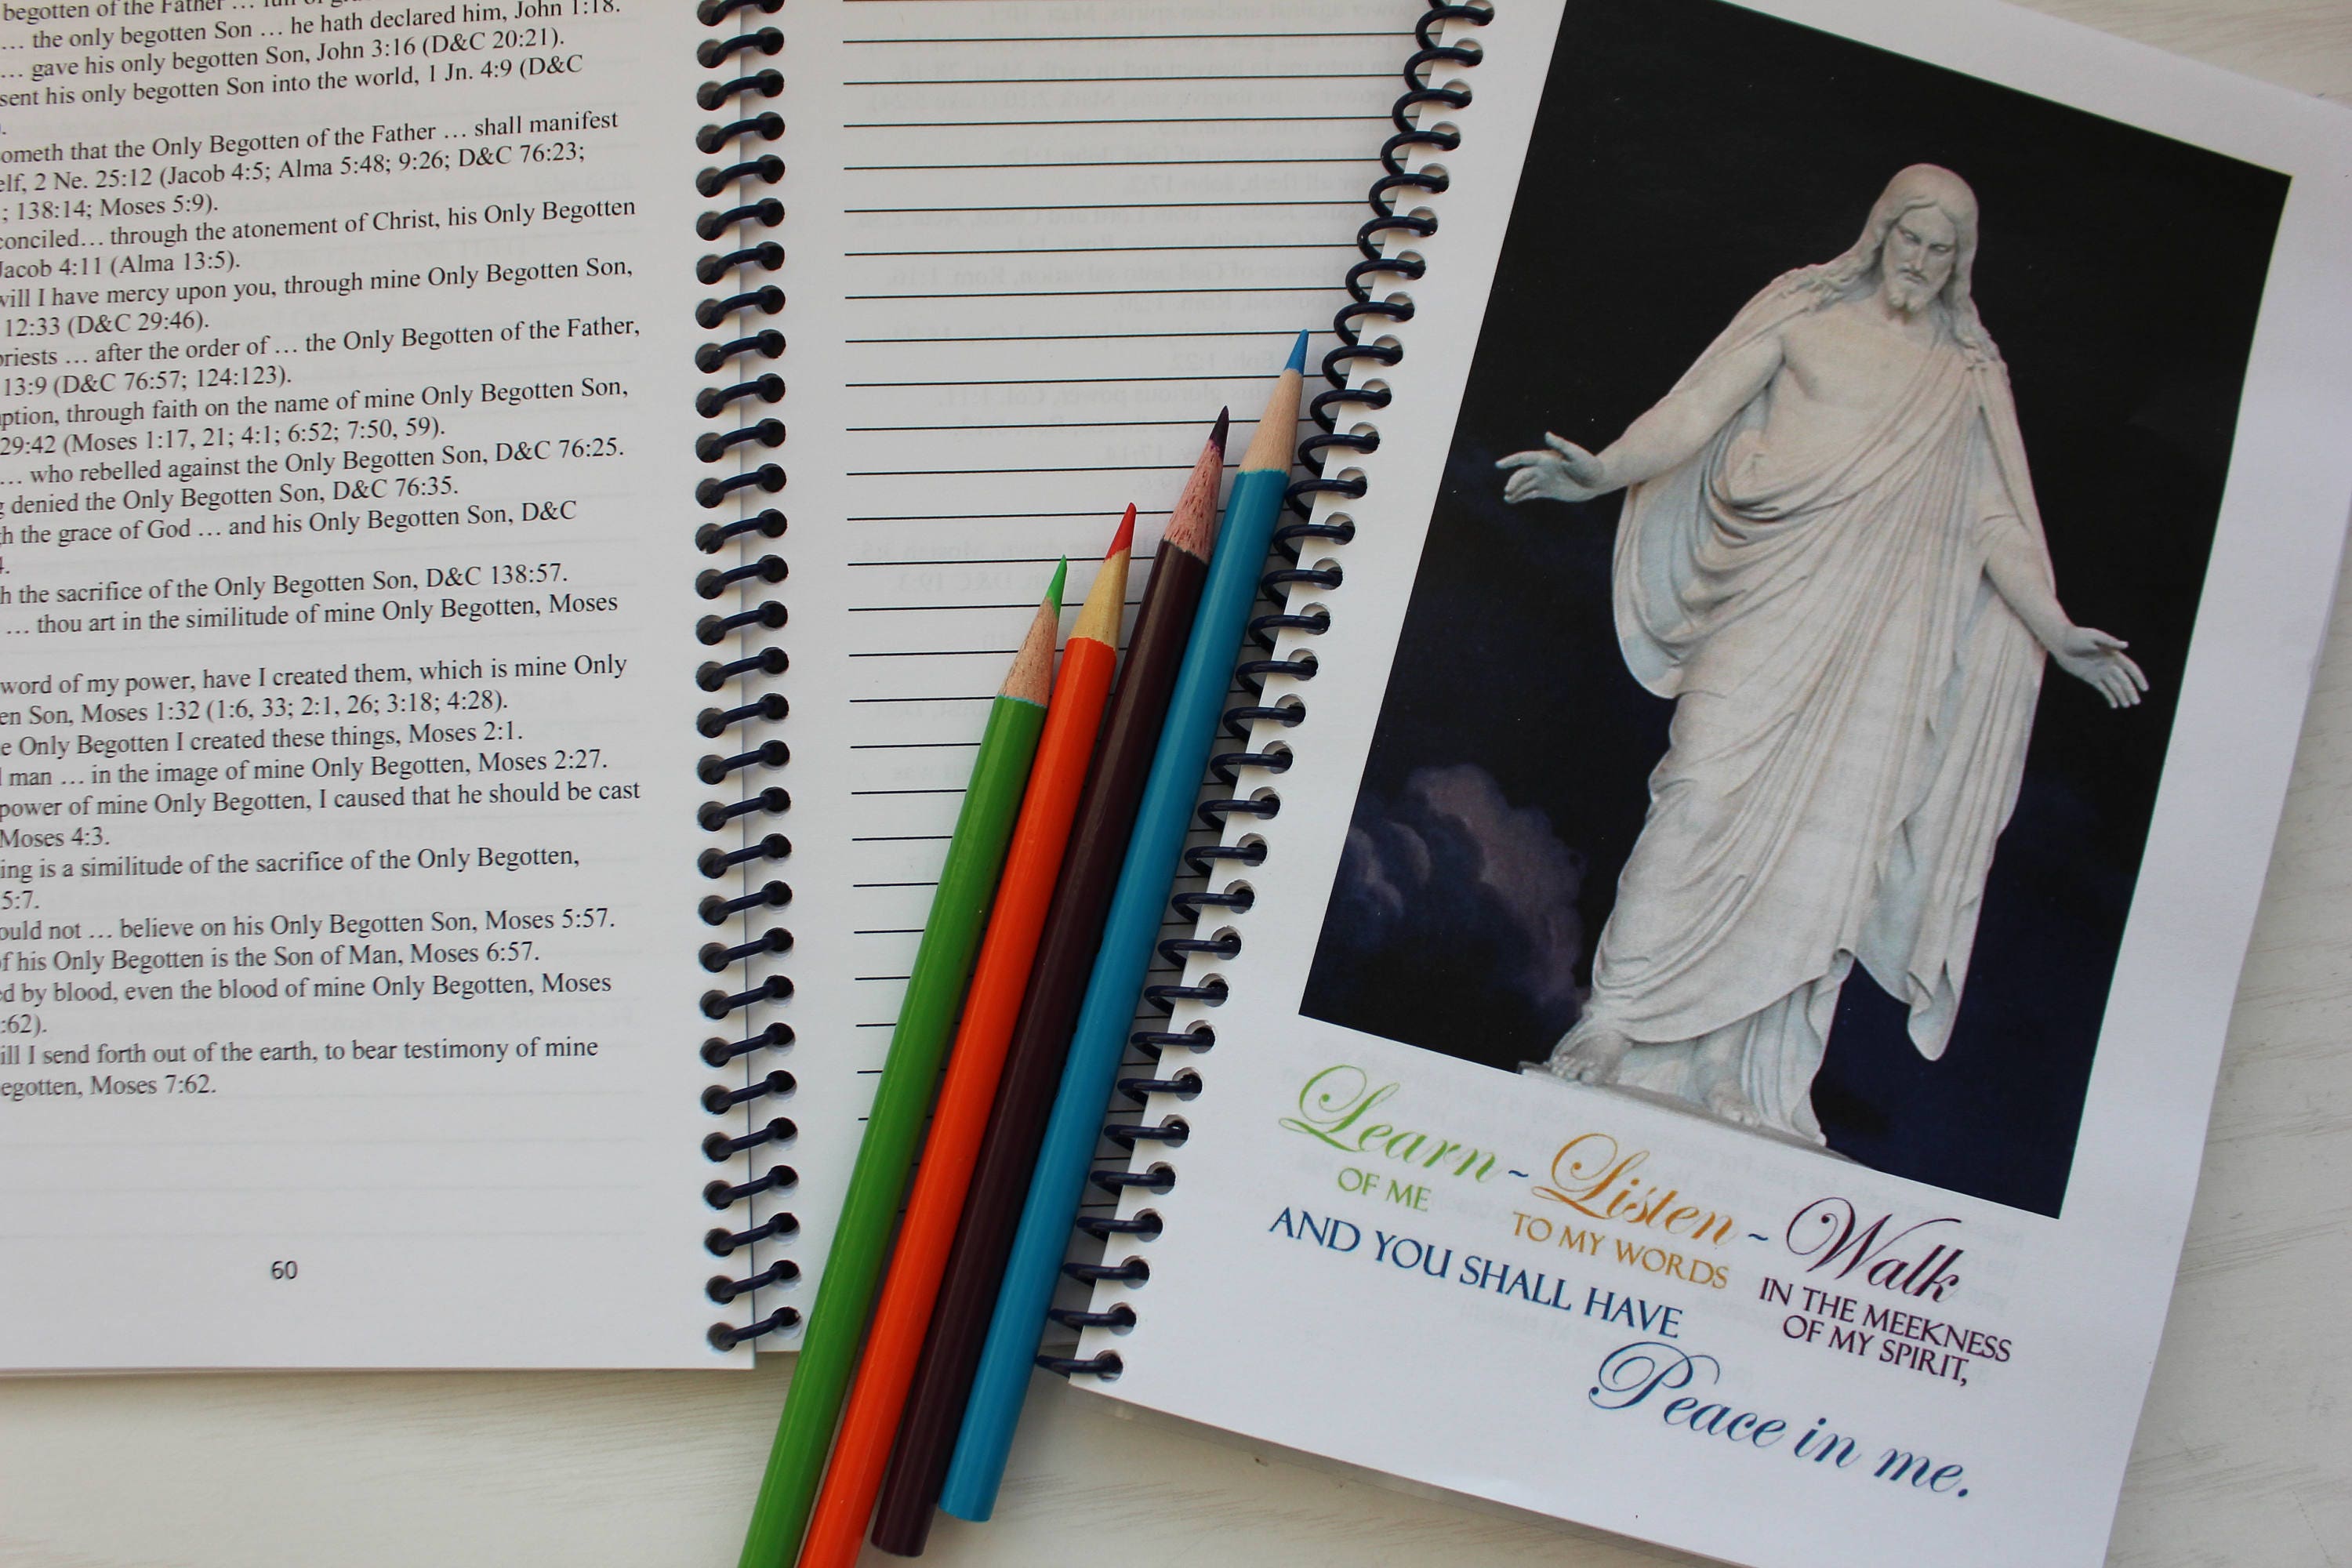 begotten of the Father …
… the only begotten Son … he hath declared him, John 1:18.
… gave his only begotten Son, John 3:16 (D&C 20:21).
sent his only begotten Son into the world, 1 Jn. 4:9 (D&C
ometh that the Only Begotten of the Father … shall manifest
elf, 2 Ne. 25:12 (Jacob 4:5; Alma 5:48; 9:26; D&C 76:23;
; 138:14; Moses 5:9).
conciled… through the atonement of Christ, his Only Begotten
Jacob 4:11 (Alma 13:5).
will I have mercy upon you, through mine Only Begotten Son,
12:33 (D&C 29:46).
priests … after the order of … the Only Begotten of the Father,
13:9 (D&C 76:57; 124:123).
ption, through faith on the name of mine Only Begotten Son,
29:42 (Moses 1:17, 21; 4:1; 6:52; 7:50, 59).
… who rebelled against the Only Begotten Son, D&C 76:25.
g denied the Only Begotten Son, D&C 76:35.
h the grace of God … and his Only Begotten Son, D&C
4.
h the sacrifice of the Only Begotten Son, D&C 138:57.
… thou art in the similitude of mine Only Begotten, Moses
word of my power, have I created them, which is mine Only
en Son, Moses 1:32 (1:6, 33; 2:1, 26; 3:18; 4:28).
e Only Begotten I created these things, Moses 2:1.
man … in the image of mine Only Begotten, Moses 2:27.
power of mine Only Begotten, I caused that he should be cast
Moses 4:3.
ing is a similitude of the sacrifice of the Only Begotten,
5:7.
ould not … believe on his Only Begotten Son, Moses 5:57.
f his Only Begotten is the Son of Man, Moses 6:57.
ed by blood, even the blood of mine Only Begotten, Moses
:62).
ill I send forth out of the earth, to bear testimony of mine
egotten, Moses 7:62.
60
Learn ~ Listen ~ Walk
OF ME TO MY WORDS IN THE MEEKNESS
OF MY SPIRIT,
AND YOU SHALL HAVE
Peace in me.